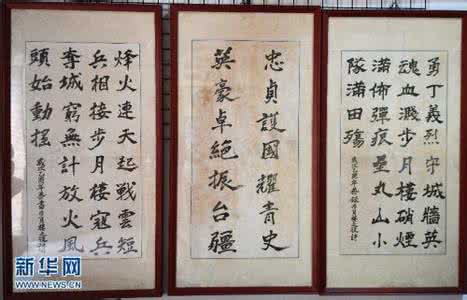 勇丁義烈守城牆英
魂血濺步月樓硝煙
滿佈彈痕壘丸山小
隊滿田殤
忠貞護國耀青史
英豪卓絕振台疆
烽火連天起戰雲短
兵相接步月樓寇兵
奪城窮無計放火風
頭始動搖
新华网